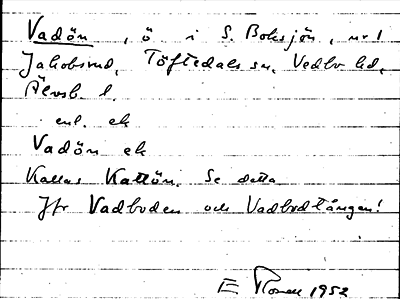 Vadön, ö i S. Boksjön, nr 1
Jakobsrud, Töftedals sn, Vedbo hd,
Älvsb. l.
enl. ek
Vadön ek
Kallas Kattön. Se detta
Jfr Vadboden och Vadbodtången!
E 1952